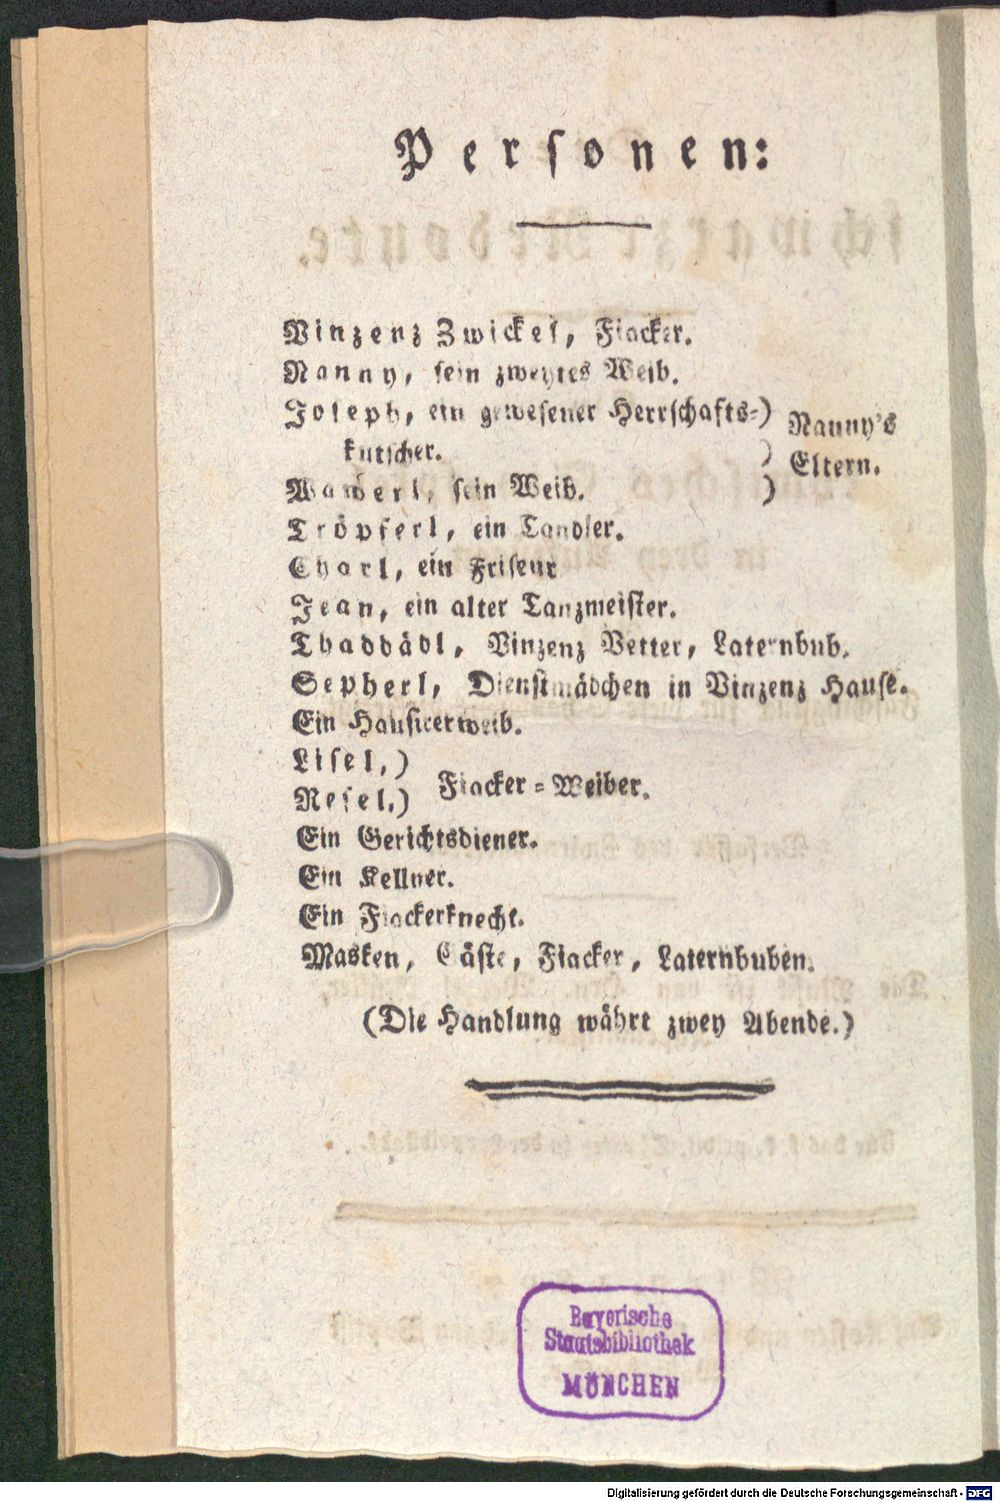 Personen:
Vinzenz Zwickel, Fiacker.
Nanny, sein zweytes Weib.
Joseph, ein gewesener Herrschafts=)
kutscher. )
Nanny's
Eltern.
Wawerl, sein Weib. )
Tröpferl, ein Tandler.
Charl, ein Friseur
Jean, ein alter Tanzmeister.
Thaddädl, Vinzenz Vetter, Laternbub.
Sepherl, Dienstmädchen in Vinzenz Hause.
Ein Hausirerweib.
Lisel,)
Resel,)
Fiacker=Weiber.
Ein Gerichtsdiener.
Ein Kellner.
Ein Fiackerknecht.
Masken, Gäste, Fiacker, Laternbuben.
(Die Handlung währt zwey Abende.)
Bayerische
Staatsbibliothek
MÜNCHEN
Digitalisierung gefördert durch die Deutsche Forschungsgemeinschaft - DFG